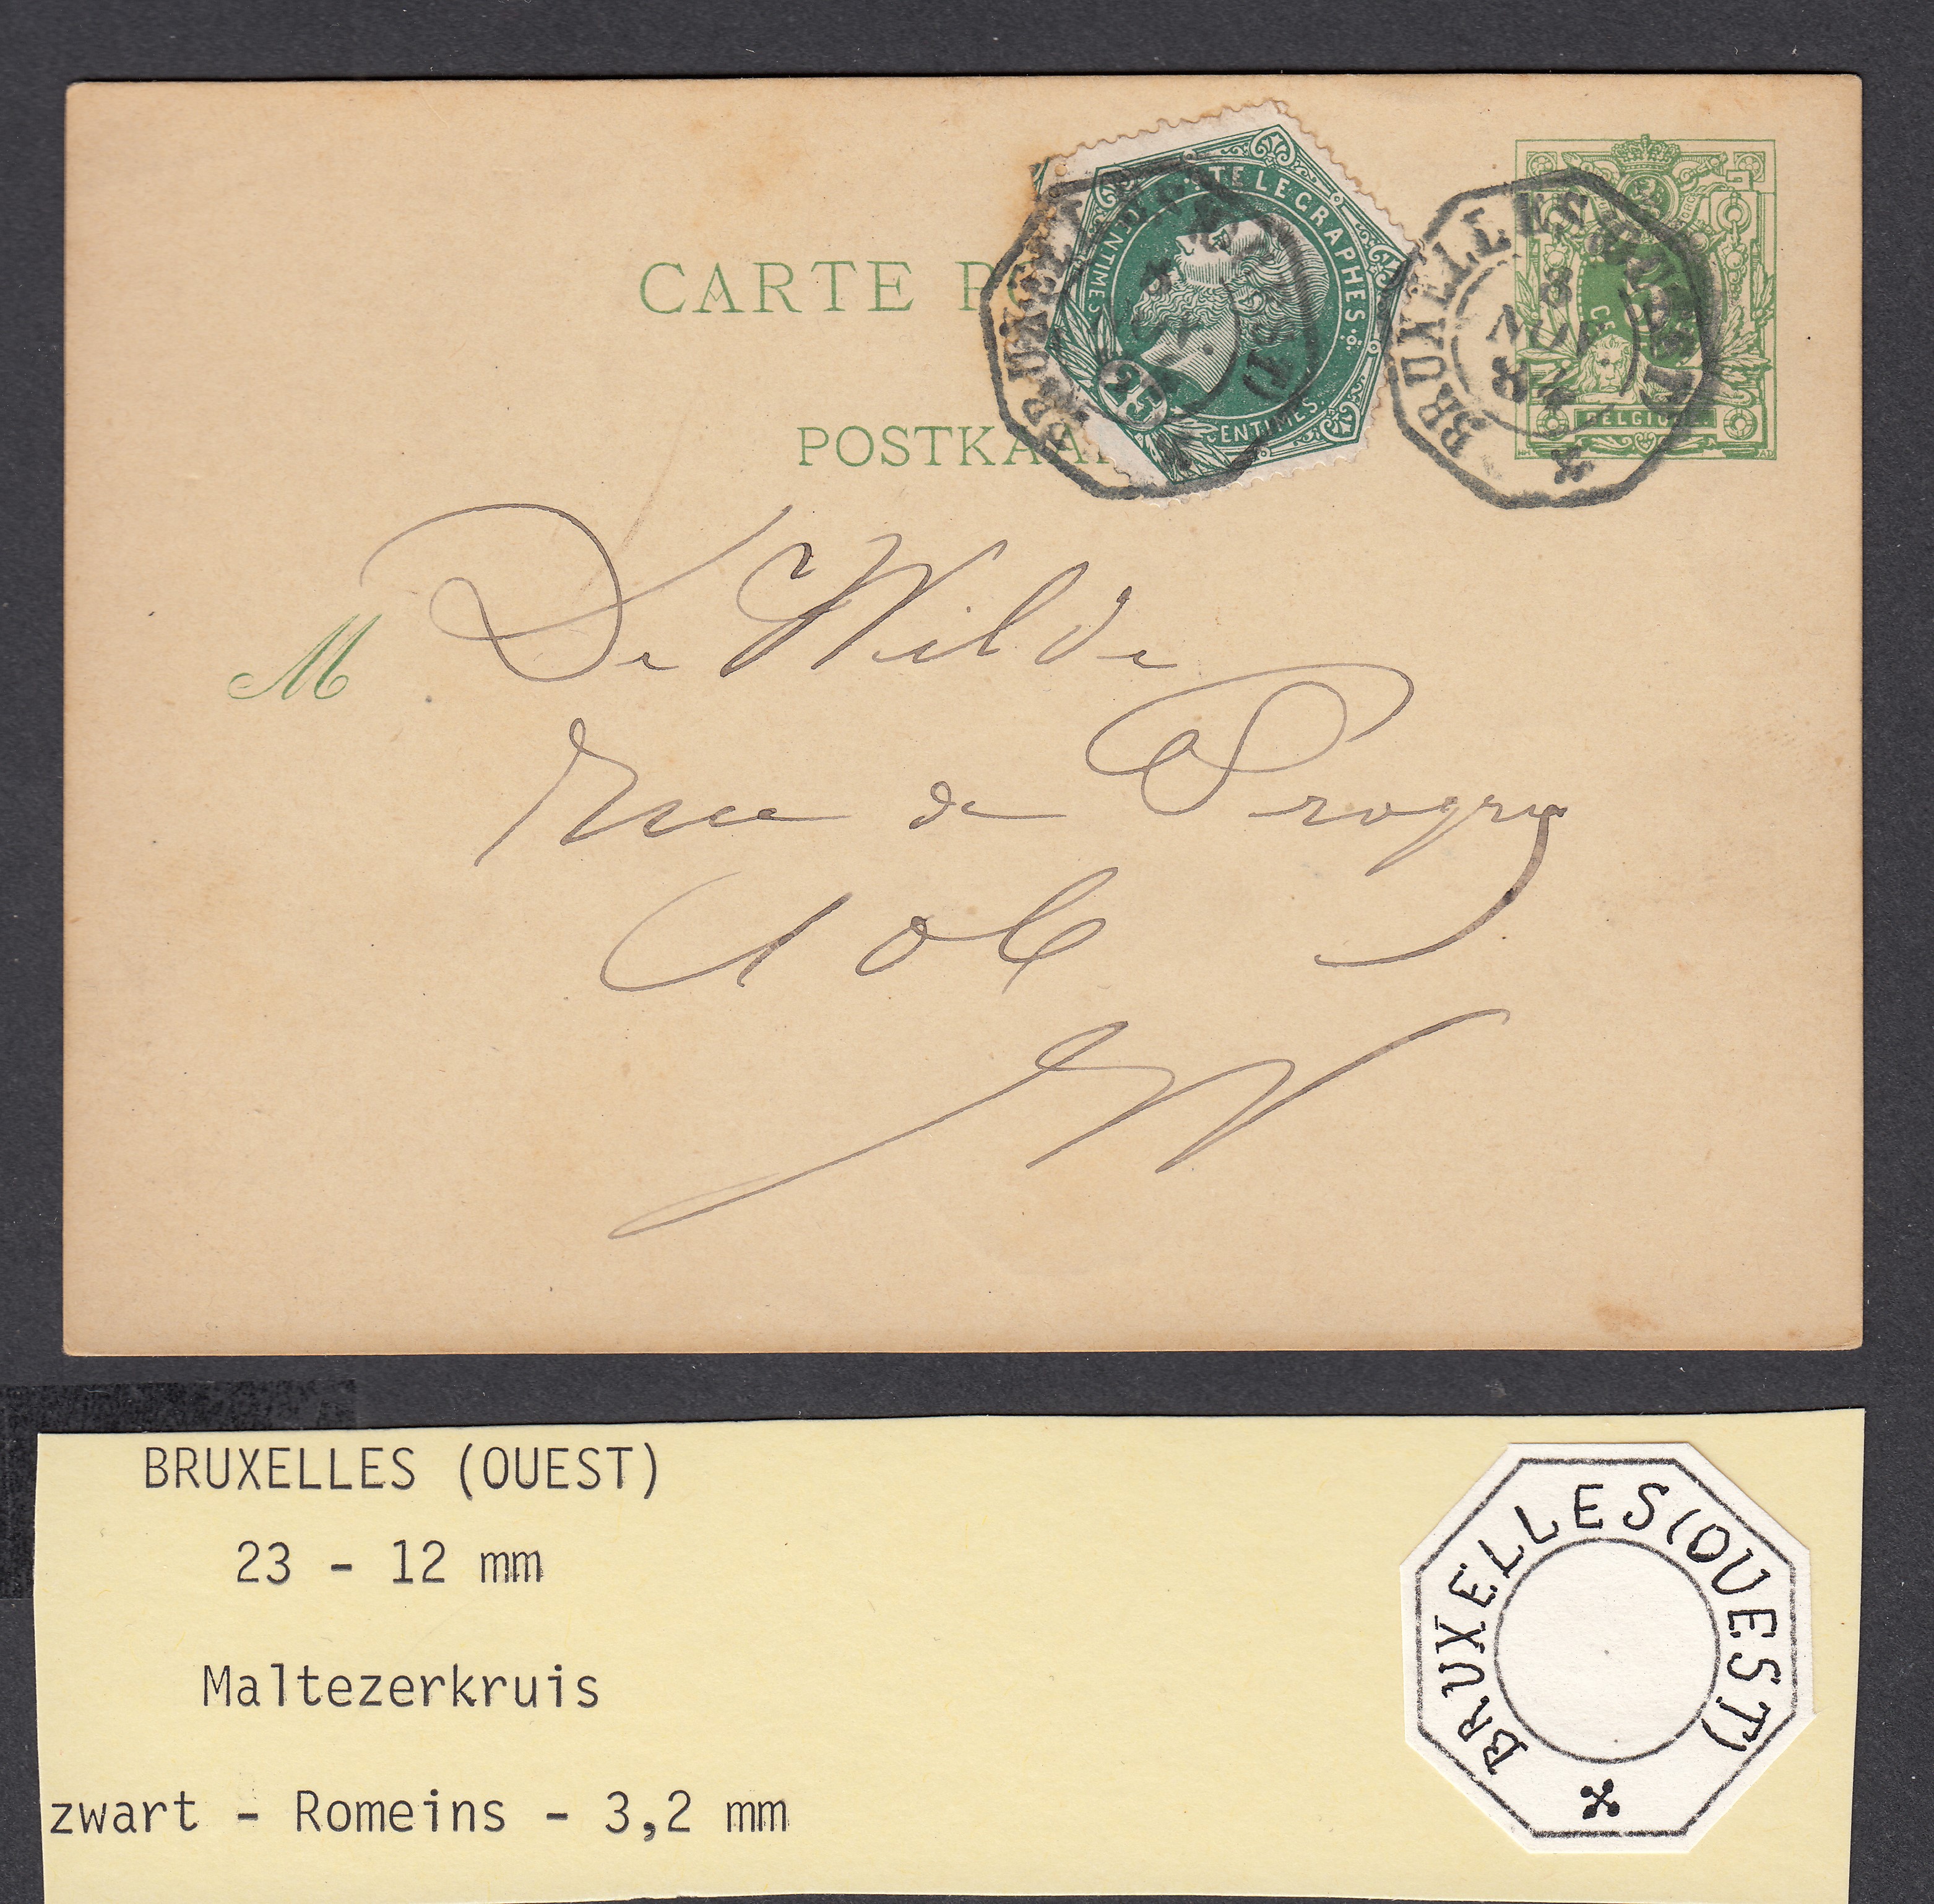 CARTE PO
POSTKAA
TELEGRAPHES
CENTIMES
25
CENTIMES.
BRUXELLES (OUEST)
8
NOV
BRUXELLES (OUEST)
8
NOV
8
CE
BELGIQUE
M De Wilde
Rue de Progrès
106
BRUXELLES (OUEST)
23 - 12 mm
Maltezerkruis
zwart - Romeins - 3,2 mm
BRUXELLES (OUEST)